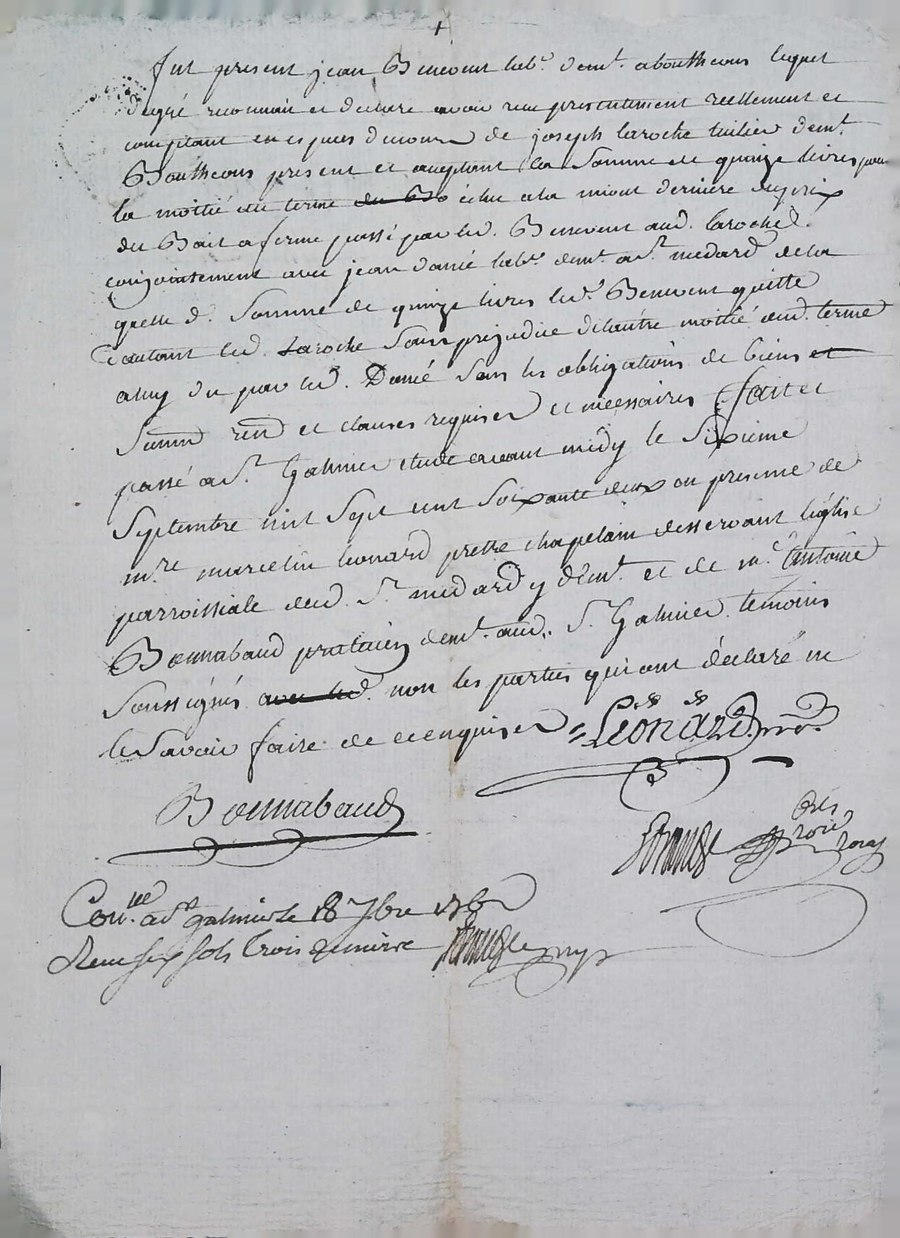 +
fut présent jean Benevent lab.r dem.t a boutheons lequel
degré reconnoit et declare avoir reçu presentement reellement et
comptant en espèces de cours de joseph laroche tuilier dem.t
Boutheons present et aceptant la somme de quinze livres pour
la moitié du terme echu a la miout dernière du prix
du Bail a ferme passé par led. Benevent aud. laroche
conjoitement avec jean damé lab.r dem.t a s.t medard de la
quelle d. somme de quinze livres led. Benevent quitte
d'autant led. Laroche sans prejudice de lautre moitié dud. terme
a luy du par led. Damé sous les obligations de biens et
soumn renõn et clauses requises et necessaires fait et
passé a s.t Galmier etude avant midy le sixieme
Septembre mil sept cent soixante deux en presence de
m.re marcelin leonard prettre chapelain desservant leglise
parroissiale dud. s.t medard y dem.t et de m.e antoine
Bonnabaud praticien dem.t aud. s.t Galmier temoins
soussignés non les parties qui ont déclaré ne
le savoir faire de ce enquises Léonard. pr.
Bonnabaud
not. roial
Con.lle a s.t galmier le 18 7bre 1762
Reçu six sols trois